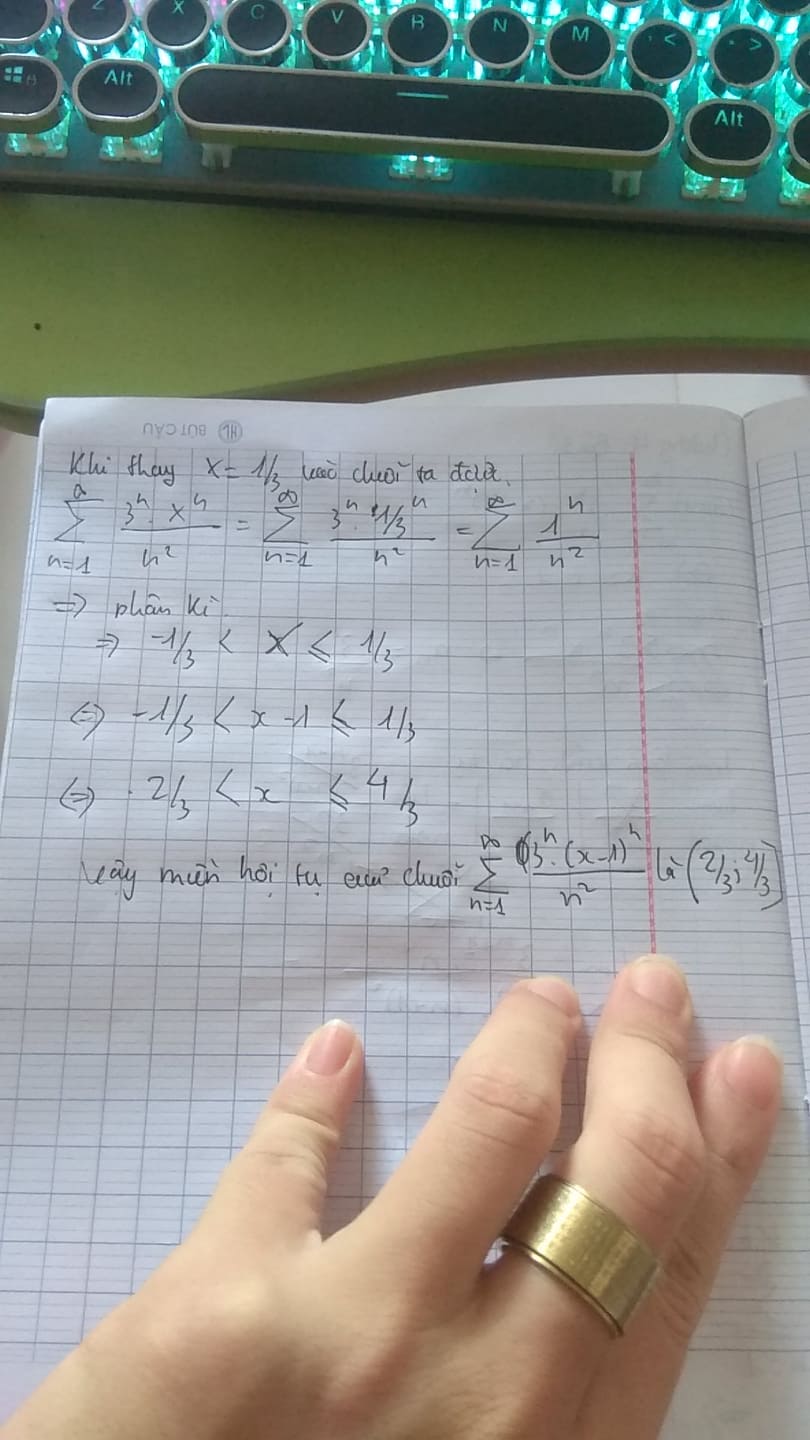 Z X C V B N M , < . >
Alt Alt
HL BÚT CẦU
Khi thay X = 1/3 vào chuỗi ta được.
∞ ∑ n=1 3ⁿ . Xⁿ / n² = ∞ ∑ n=1 3ⁿ . 1/3ⁿ / n² = ∞ ∑ n=1 1ⁿ / n²
=> phân kì
=> -1/3 < X ≤ 1/3
<=> -1/3 < x - 1 ≤ 1/3
<=> 2/3 < x ≤ 4/3
Vậy miền hội tụ của chuỗi ∞ ∑ n=1 3ⁿ . (x-1)ⁿ / n² là (2/3; 4/3]